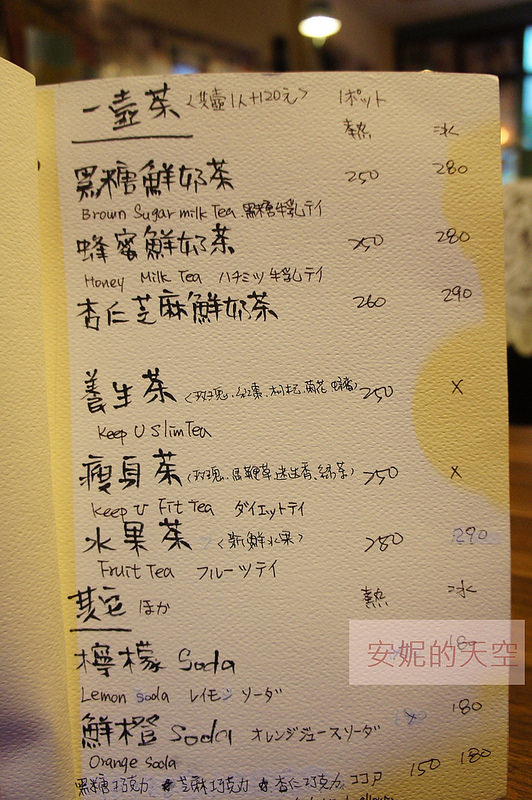 一壺茶 <共壺1人+120元> 1ポット
熱 冰
黑糖鮮奶茶 250 280
Brown Sugar milk Tea 黑糖牛乳テイ
蜂蜜鮮奶茶 250 280
Honey Milk Tea ハチミツ牛乳テイ
杏仁芝麻鮮奶茶 260 290
養生茶 <玫瑰、紅棗、枸杞、菊花、蜂蜜> 250 X
Keep U Slim Tea
瘦身茶 (玫瑰、馬鞭草、迷迭香、綠茶) 250 X
Keep U Fit Tea ダイエットテイ
水果茶 <新鮮水果> 280 290
Fruit Tea フルーツテイ
其它 ほか 熱 冰
檸檬 Soda 180
安妮的天空
Lemon Soda レイモン ソーダ
鮮橙 Soda オレンジジュースソーダ X 180
Orange Soda
黑糖巧克力 芝麻巧克力 杏仁巧克力 ココア 150 180